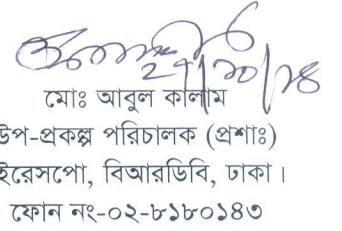 মোঃ আবুল কালাম
উপ-প্রকল্প পরিচালক (প্রশাঃ)
ইরেসপো, বিআরডিবি, ঢাকা।
ফোন নং-০২-৮১৮০১৪৩